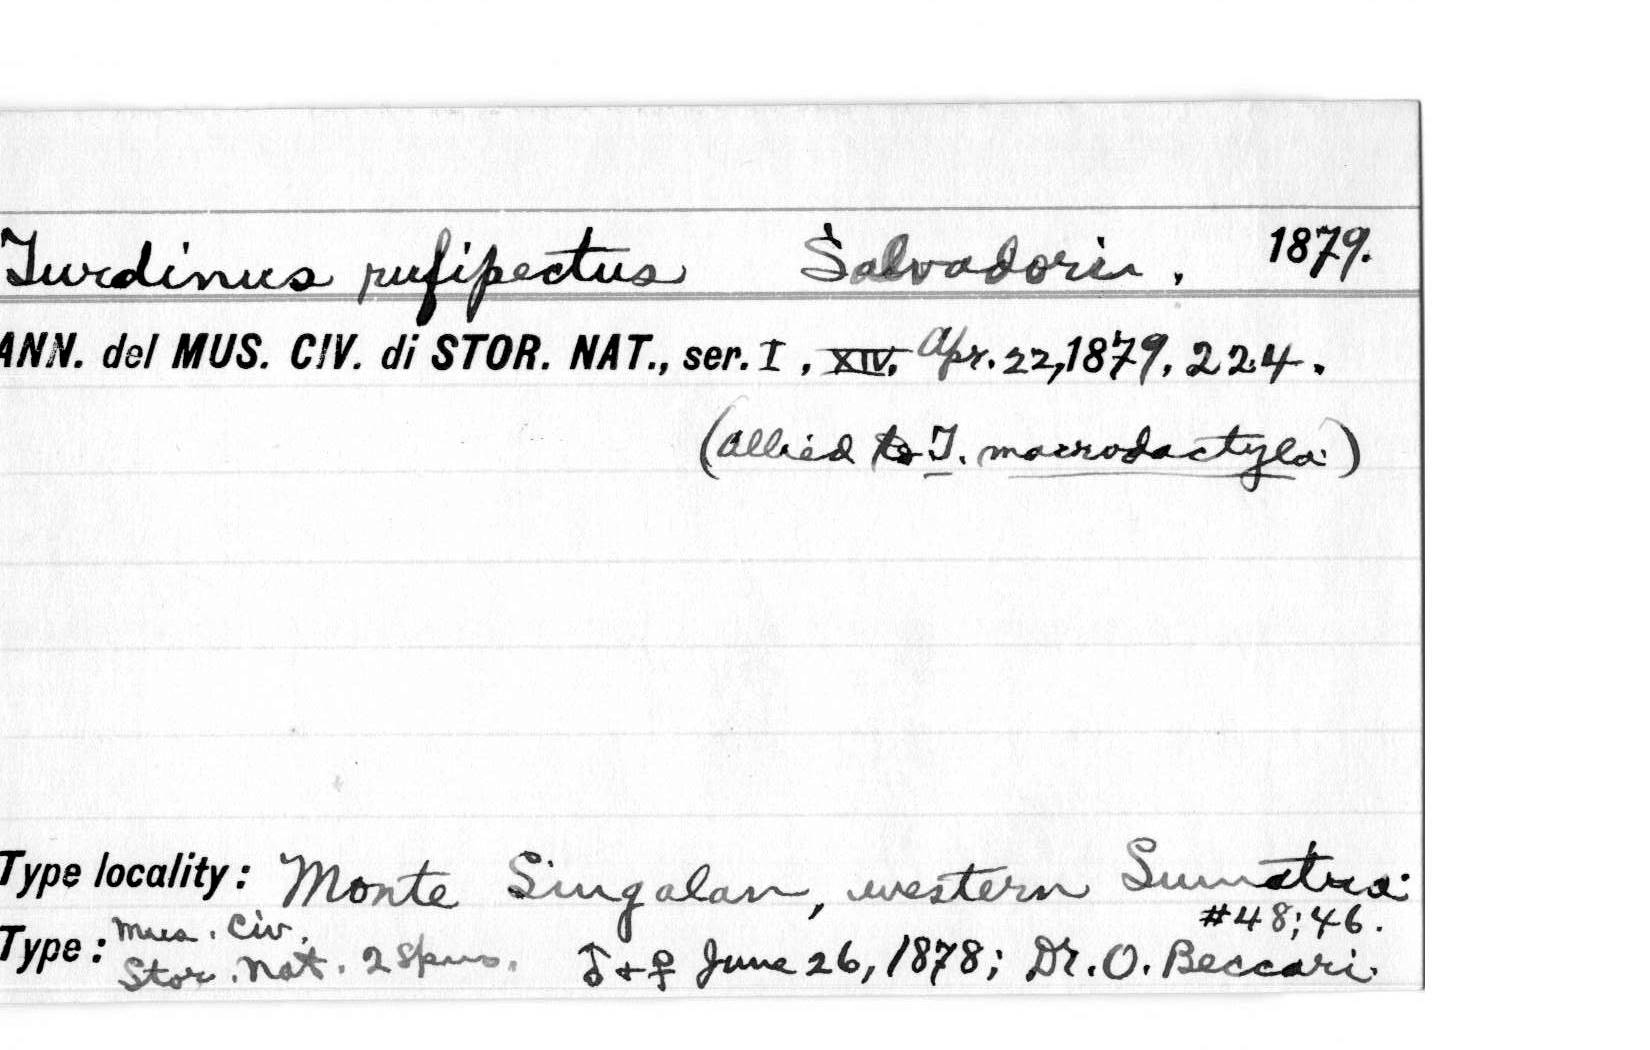 Turdinus rufipectus Salvadori, 1879.
ANN. del MUS. CIV. di STOR. NAT., ser. I, XIV, Apr. 22, 1879, 224.
(allied to T. macrodactyla.)
Type locality: Monte Singalan, western Sumatra.
#48; 46.
Type: Mus. Civ.
Stor. Nat. 2 Spms. ♂ + ♀ June 26, 1878; Dr. O. Beccari.